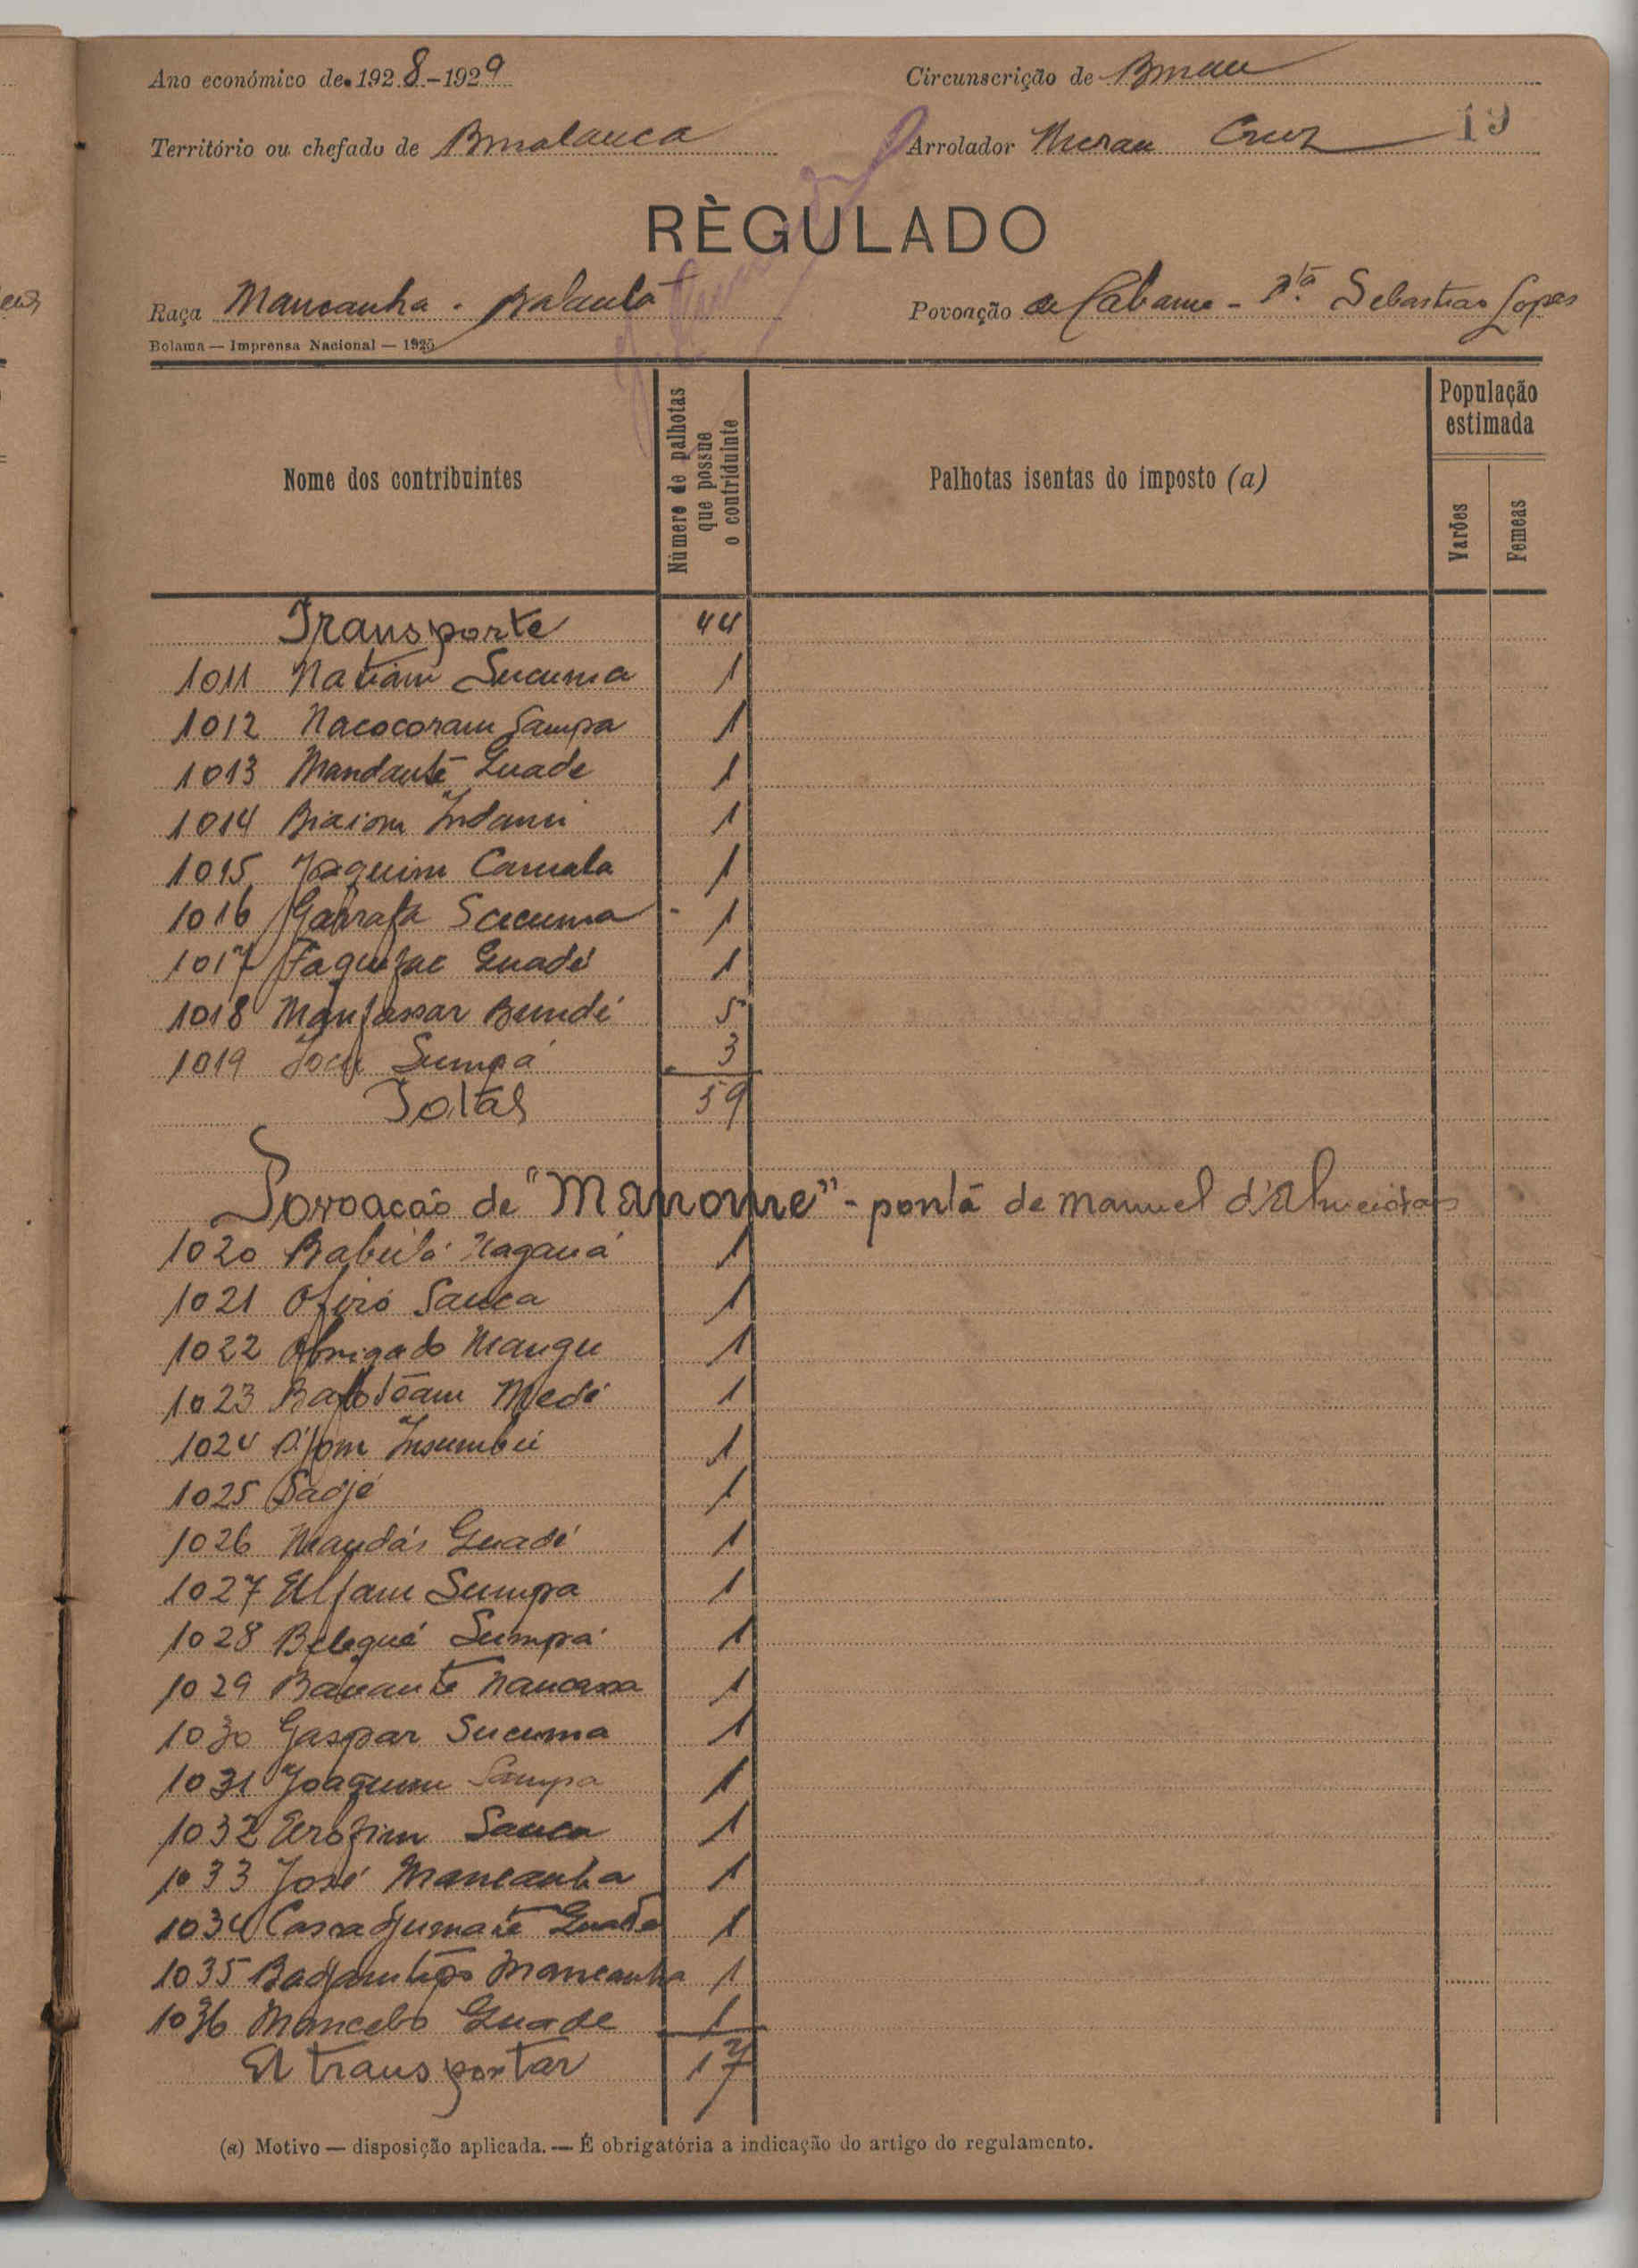 Ano económico de 1928-1929 Circunscrição de Bissau
Território ou chefado de Arrolador Cruz 19
RÈGULADO
Raça Mancanha - Balanta Povoação de Cabame - Pta Sebastião Lopes
Bolama — Imprensa Nacional — 1925
Nome dos contribuintes
Número de palhotas que possue o contriduinte
Palhotas isentas do imposto (a)
População estimada
Varões
Femeas
Transporte 44
1011 Natiam Sucuma 1
1012 Nacocoram Sampa 1
1013 Mandanté Guade 1
1014 Indami 1
1015 Joaquim Camala 1
1016 Garrafa Sucuma 1
1017 Guadé 1
1018 Bundé 5
1019 Sumpá 3
Total 59
Povoacão de "Manome" - ponta de Manuel d'Almeida
1020 1
1021 Sanca 1
1022 Obrigado Mangu 1
1023 Medé 1
1024 Insumbei 1
1025 Sadjé 1
1026 Mandás Guadé 1
1027 Sumpa 1
1028 Belequé Sumpá 1
1029 1
1030 Gaspar Sucuma 1
1031 Joaquim Sampa 1
1032 Sanca 1
1033 José Mancanha 1
1034 Guade 1
1035 Mancanha 1
1036 Mancebo Guade 1
A transportar 17
(a) Motivo — disposição aplicada. — É obrigatória a indicação do artigo do regulamento.